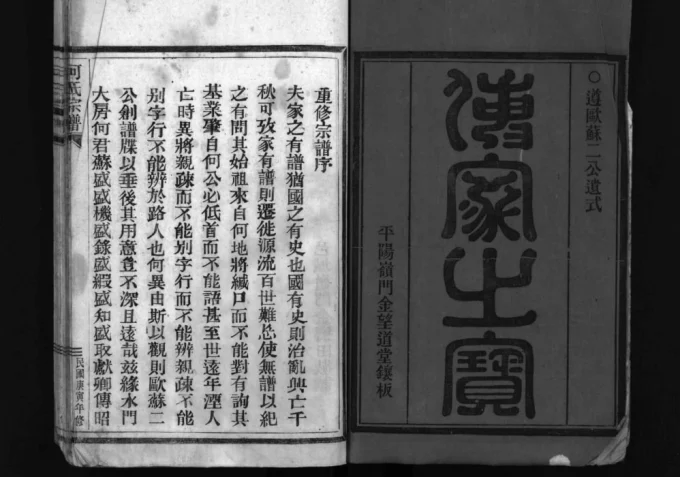 ○遵歐蘇二公遺式
傳家之寶
平陽嶺門金望道堂鐫板
重修宗譜序
夫家之有譜猶國之有史也國有史則治亂興亡千
秋可攷家有譜則遷徙源流百世難忘使無譜以紀
之有問其始祖來自何地將緘口而不能對有詢其
基業肇自何公必低首而不能語甚至世遠年湮人
亡時異將親疎而不能别字行而不能辨親疎不能
别字行不能辨於路人也何異由斯以觀則歐蘇二
公創譜牒以垂後其用意豈不深且遠哉兹緣水門
大房何君蘇盛盛機盛錄盛緞盛知盛取獻卿傳昭
何氏宗譜
民國庚寅年修